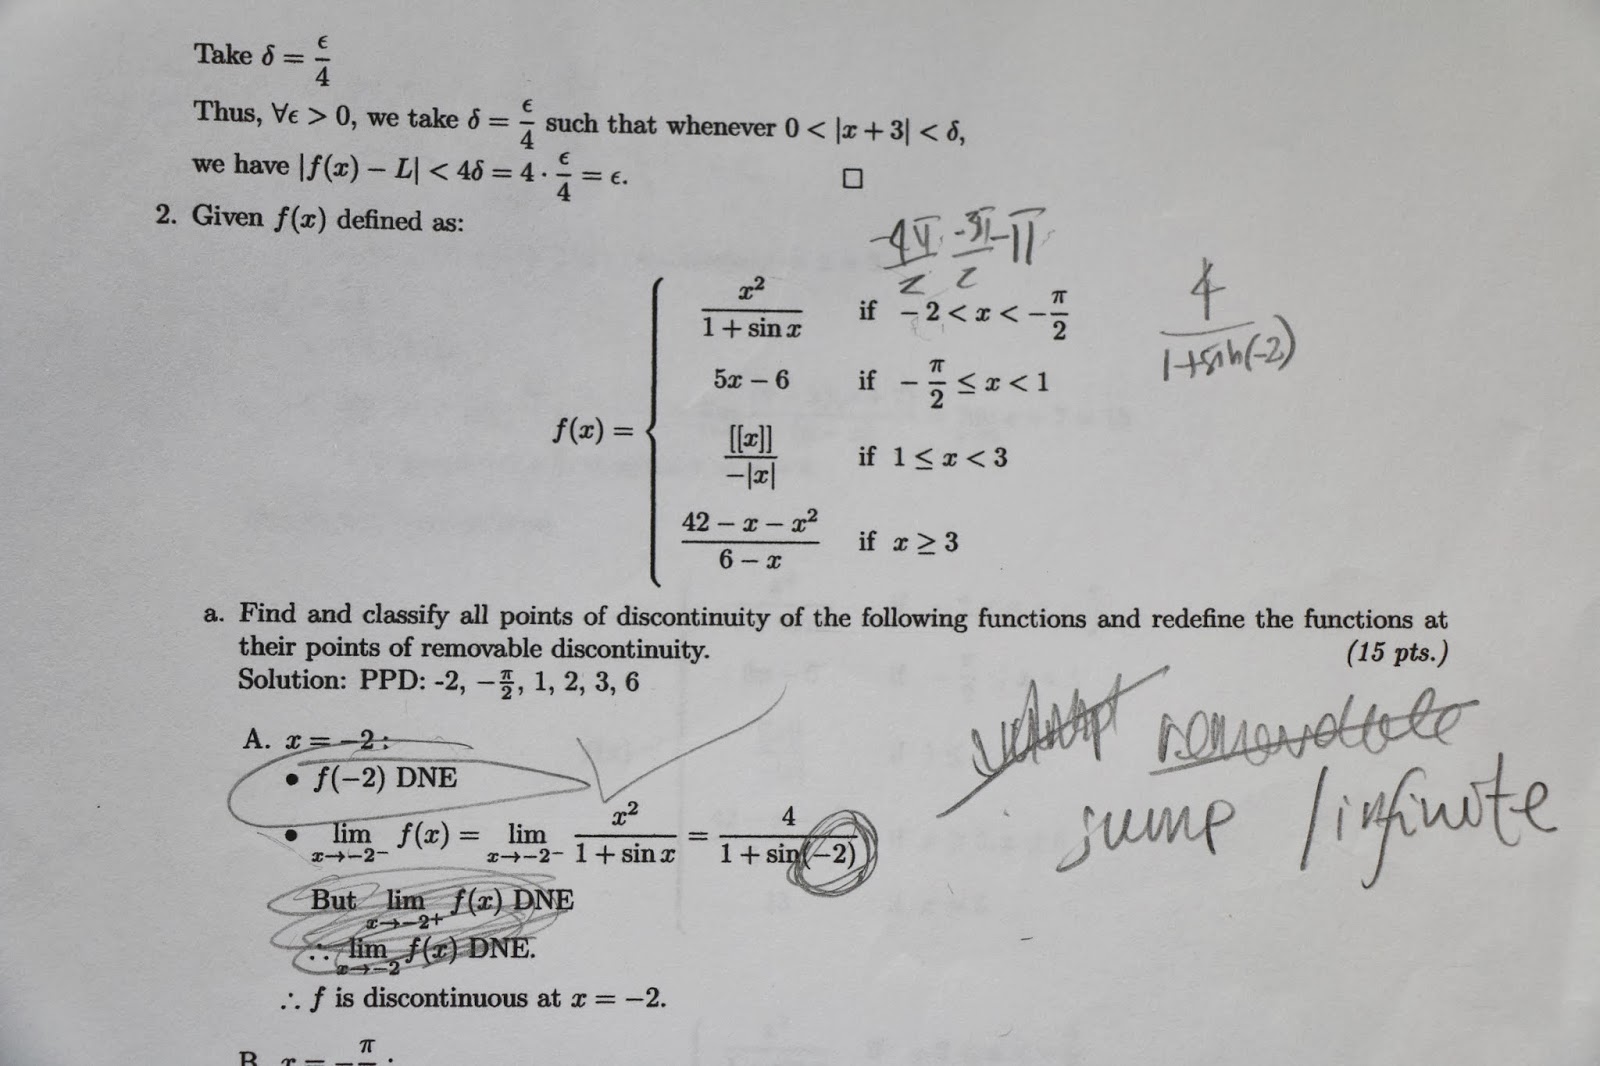 Take δ = ϵ/4
Thus, ∀ϵ > 0, we take δ = ϵ/4 such that whenever 0 < |x + 3| < δ,
we have |f(x) − L| < 4δ = 4 · ϵ/4 = ϵ. □
2. Given f(x) defined as:
-4π/2 -3π/2 -π
x²/(1 + sin x) if −2 < x < −π/2
4/(1+sin(-2))
5x − 6 if −π/2 ≤ x < 1
f(x) =
[[x]]/−|x| if 1 ≤ x < 3
(42 − x − x²)/(6 − x) if x ≥ 3
a. Find and classify all points of discontinuity of the following functions and redefine the functions at
their points of removable discontinuity. (15 pts.)
Solution: PPD: -2, −π/2, 1, 2, 3, 6
removable
A. x = −2 :
• f(−2) DNE
jump / infinite
• lim x→−2⁻ f(x) = lim x→−2⁻ x²/(1 + sin x) = 4/(1 + sin(−2))
But lim x→−2⁺ f(x) DNE
∴ lim x→−2 f(x) DNE.
∴ f is discontinuous at x = −2.
B. x = −π/ :